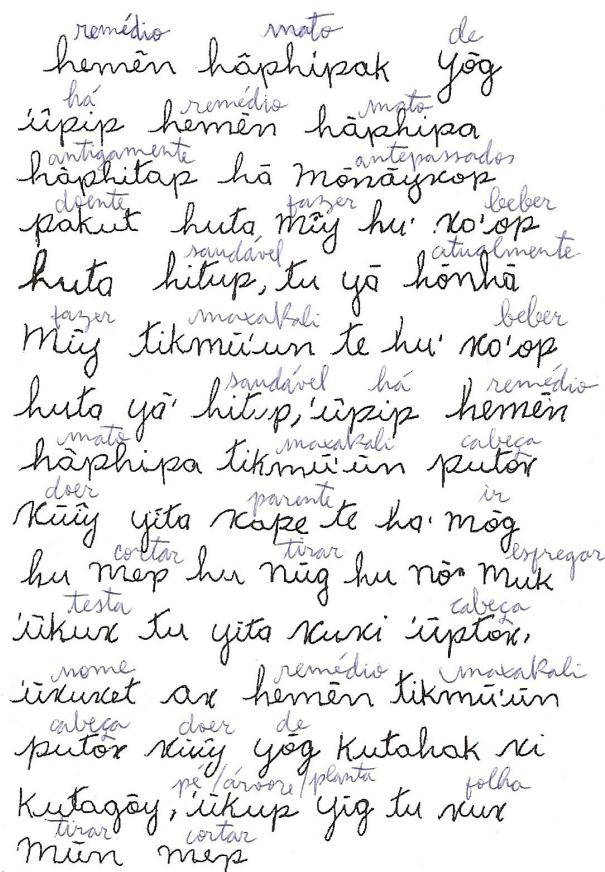 remédio mato de
hemẽn hãphipak yõg
há remédio mato
'ũpip hemẽn hãphipa
antigamente antepassados
hãphitap hã mõnãyxop
doente fazer beber
pakut huta mĩy hu' xo'op
saudável atualmente
huta hitup, tu yã hõnhã
fazer maxakali beber
mĩy tikmũ'ũn te hu' xo'op
saudável há remédio
huta yã' hitup, 'ũpip hemẽn
mato maxakali cabeça
hãphipa tikmũ'ũn putox
doer parente ir
xũĩy yĩta xape te ha' mõg
cortar tirar esfregar
hu mep hu nũg hu nõ muk
testa cabeça
'ũkux tu yĩta xuxi 'ũptox,
nome remédio maxakali
'ũxuxet ax hemẽn tikmũ'ũn
cabeça doer de
putox xũĩy yõg kutahak xi
pé/árvore/planta folha
kutagõy, 'ũkup yĩg tu xux
tirar cortar
mũn mep